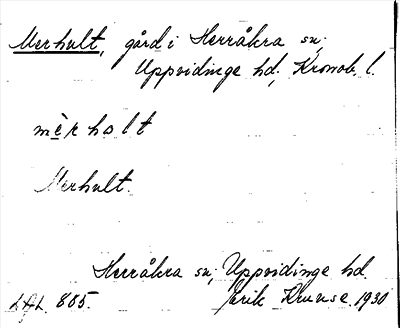 Merhult, gård i Herråkra sn;
Uppvidinge hd, Kronob. l.
mèrholt
Merhult.
Herråkra sn; Uppvidinge hd.
LAL. 885. Erik Kruuse. 1930